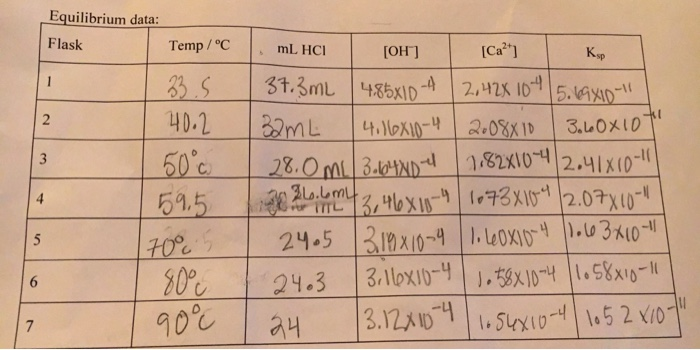 Equilibrium data:
Flask Temp / °C mL HCl [OH⁻] [Ca²⁺] Ksp
1 33.5 37.3mL 4.85x10⁻⁴ 2,42x10⁻⁴ 5.69x10⁻¹¹
2 40.2 32mL 4.16x10⁻⁴ 2.08x10 3.60x10⁻¹¹
3 50°c 28.0mL 3.64x10⁻⁴ 1.82x10⁻⁴ 2.41x10⁻¹¹
4 59.5 26.6mL 3,46x10⁻⁴ 1.73x10⁻⁴ 2.07x10⁻¹¹
5 70°c 24.5 3.19x10⁻⁴ 1.60x10⁻⁴ 1.63x10⁻¹¹
6 80°c 24.3 3.16x10⁻⁴ 1.58x10⁻⁴ 1.58x10⁻¹¹
7 90°c 24 3.12x10⁻⁴ 1.56x10⁻⁴ 1.52x10⁻¹¹